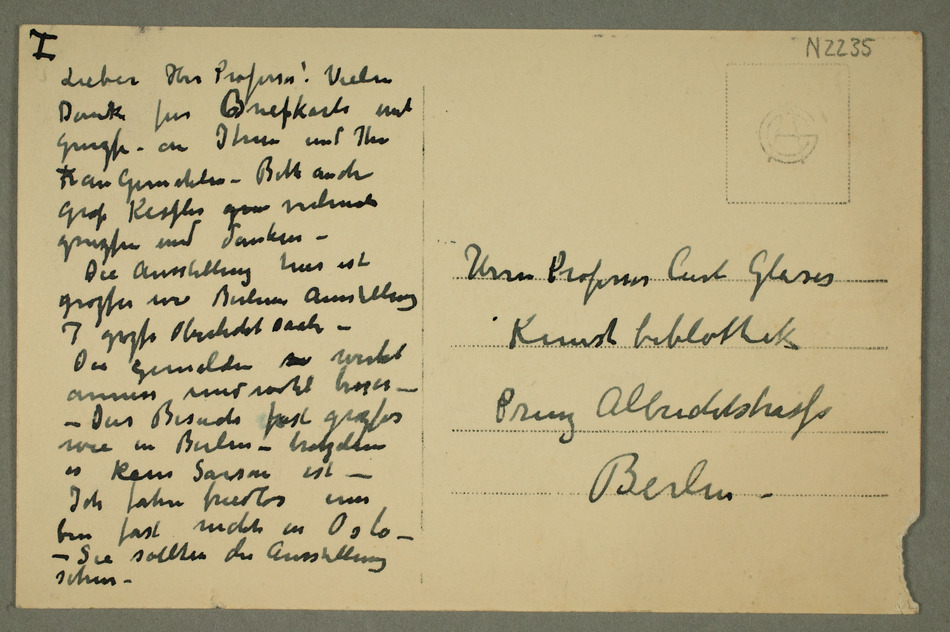 I
N2235
Lieber Herr Professor! Vielen
Dank für Briefkarte und
Grüsse - an Ihnen und Ihre
Frau Gemahlin - Bitte auch
Graf Kessler vielmals
grüssen und danken -
Die Ausstellung hier ist
grosser wie Berliner Ausstellung
7 grosse Oberlicht Saale -
Die Gemälden wirkt
und wohl besser -
- Der Besuch fast grosser
wie in Berlin - trotzdem
es kein Saison ist -
Ich fahre friedlos um
bin fast nicht in Oslo -
- Sie sollten die Ausstellung
sehen -
Herrn Professor Curt Glaser
Kunstbibliothek
Prinz Albrechtstrasse
Berlin -